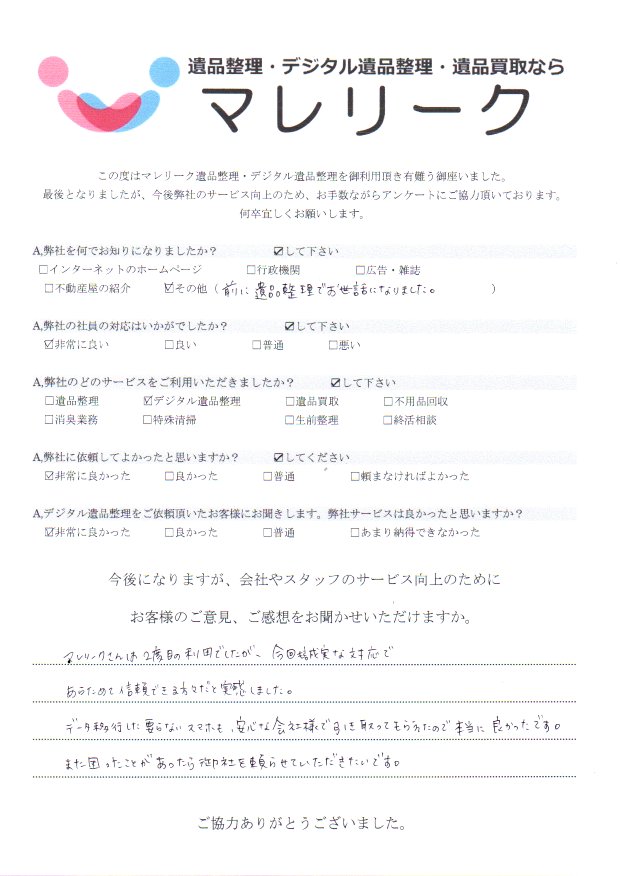 遺品整理・デジタル遺品整理・遺品買取なら
マレリーク
この度はマレリーク遺品整理・デジタル遺品整理を御利用頂き有難う御座いました。
最後となりましたが、今後弊社のサービス向上のため、お手数ながらアンケートにご協力頂いております。
何卒宜しくお願いします。
A,弊社を何でお知りになりましたか？ ☑して下さい
□インターネットのホームページ □行政機関 □広告・雑誌
□不動産屋の紹介 ☑その他（前に遺品整理でお世話になりました。）
A,弊社の社員の対応はいかがでしたか？ ☑して下さい
☑非常に良い □良い □普通 □悪い
A,弊社のどのサービスをご利用いただきましたか？ ☑して下さい
□遺品整理 ☑デジタル遺品整理 □遺品買取 □不用品回収
□消臭業務 □特殊清掃 □生前整理 □終活相談
A,弊社に依頼してよかったと思いますか？ ☑してください
☑非常に良かった □良かった □普通 □頼まなければよかった
A,デジタル遺品整理をご依頼頂いたお客様にお聞きします。弊社サービスは良かったと思いますか？
☑非常に良かった □良かった □普通 □あまり納得できなかった
今後になりますが、会社やスタッフのサービス向上のために
お客様のご意見、ご感想をお聞かせいただけますか。
マレリークさんは2度目の利用でしたが、今回も誠実な対応で
あらためて信頼できる方々だと実感しました。
データ移行した要らないスマホも、安心な会社様で引き取ってもらえたので本当に良かったです。
また困ったことがあったら御社を頼らせていただきたいです。
ご協力ありがとうございました。